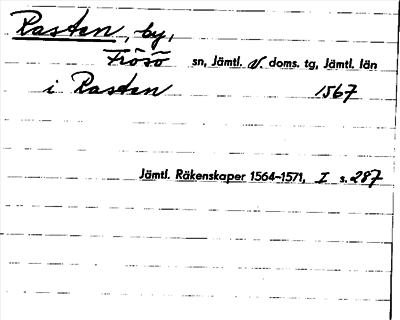 Rasten, by,
Frösö sn, Jämtl. V. doms. tg, Jämtl. län
i Rasten 1567
Jämtl. Räkenskaper 1564–1571, I s. 287